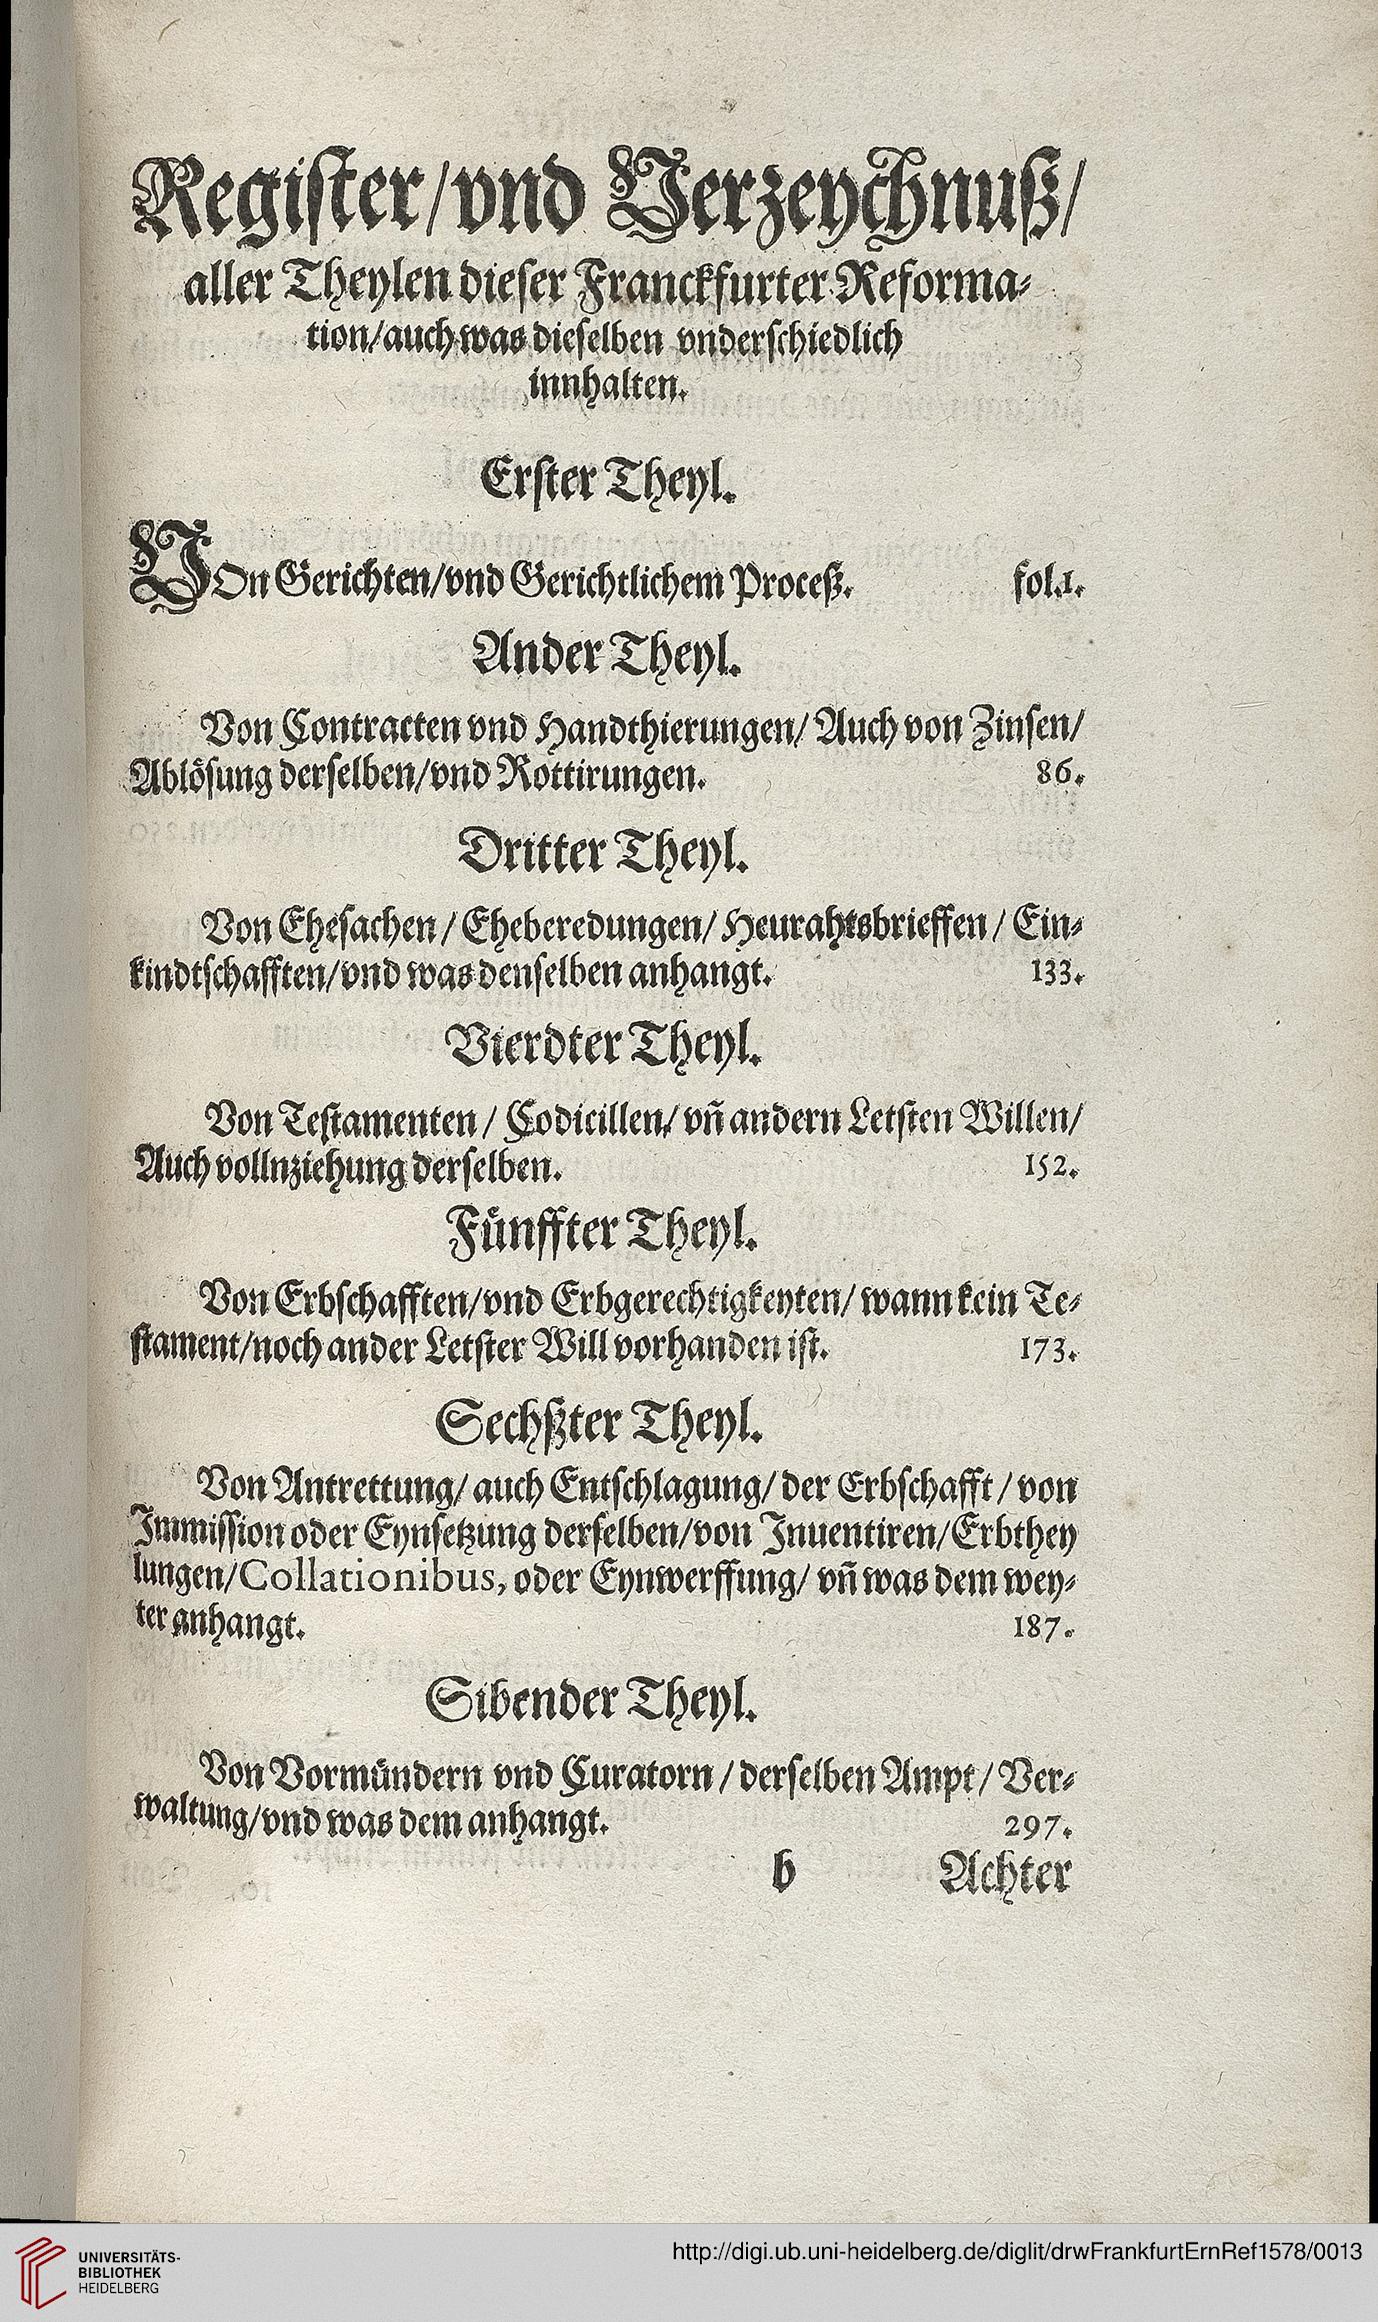 Register/vnd Verzeychnuß/
aller Theylen dieser Franckfurter Reforma⸗
tion/auch was dieselben vnderschiedlich
innhalten.
Erster Theyl.
VOn Gerichten/vnd Gerichtlichem Proceß. fol.1.
Ander Theyl.
Von Contracten vnd Handthierungen/ Auch von Zinsen/
Ablösung derselben/vnd Rottirungen. 86.
Dritter Theyl.
Von Ehesachen/ Eheberedungen/ Heurahtsbrieffen/ Ein⸗
kindtschafften/vnd was denselben anhangt. 133.
Vierdter Theyl.
Von Testamenten/ Codicillen/ vñ andern Letsten Willen/
Auch vollnziehung derselben. 152.
Fünffter Theyl.
Von Erbschafften/vnd Erbgerechtigkeyten/ wann kein Te⸗
stament/noch ander Letster Will vorhanden ist. 173.
Sechßter Theyl.
Von Antrettung/ auch Entschlagung/ der Erbschafft/ von
Immission oder Eynsetzung derselben/von Inuentiren/Erbthey
lungen/Collationibus, oder Eynwerffung/ vñ was dem wey⸗
ter anhangt. 187.
Sibender Theyl.
Von Vormündern vnd Curatorn/ derselben Ampt/ Ver⸗
waltung/vnd was dem anhangt. 297.
b Achter
UNIVERSITÄTS-
BIBLIOTHEK
HEIDELBERG
http://digi.ub.uni-heidelberg.de/diglit/drwFrankfurtErnRef1578/0013